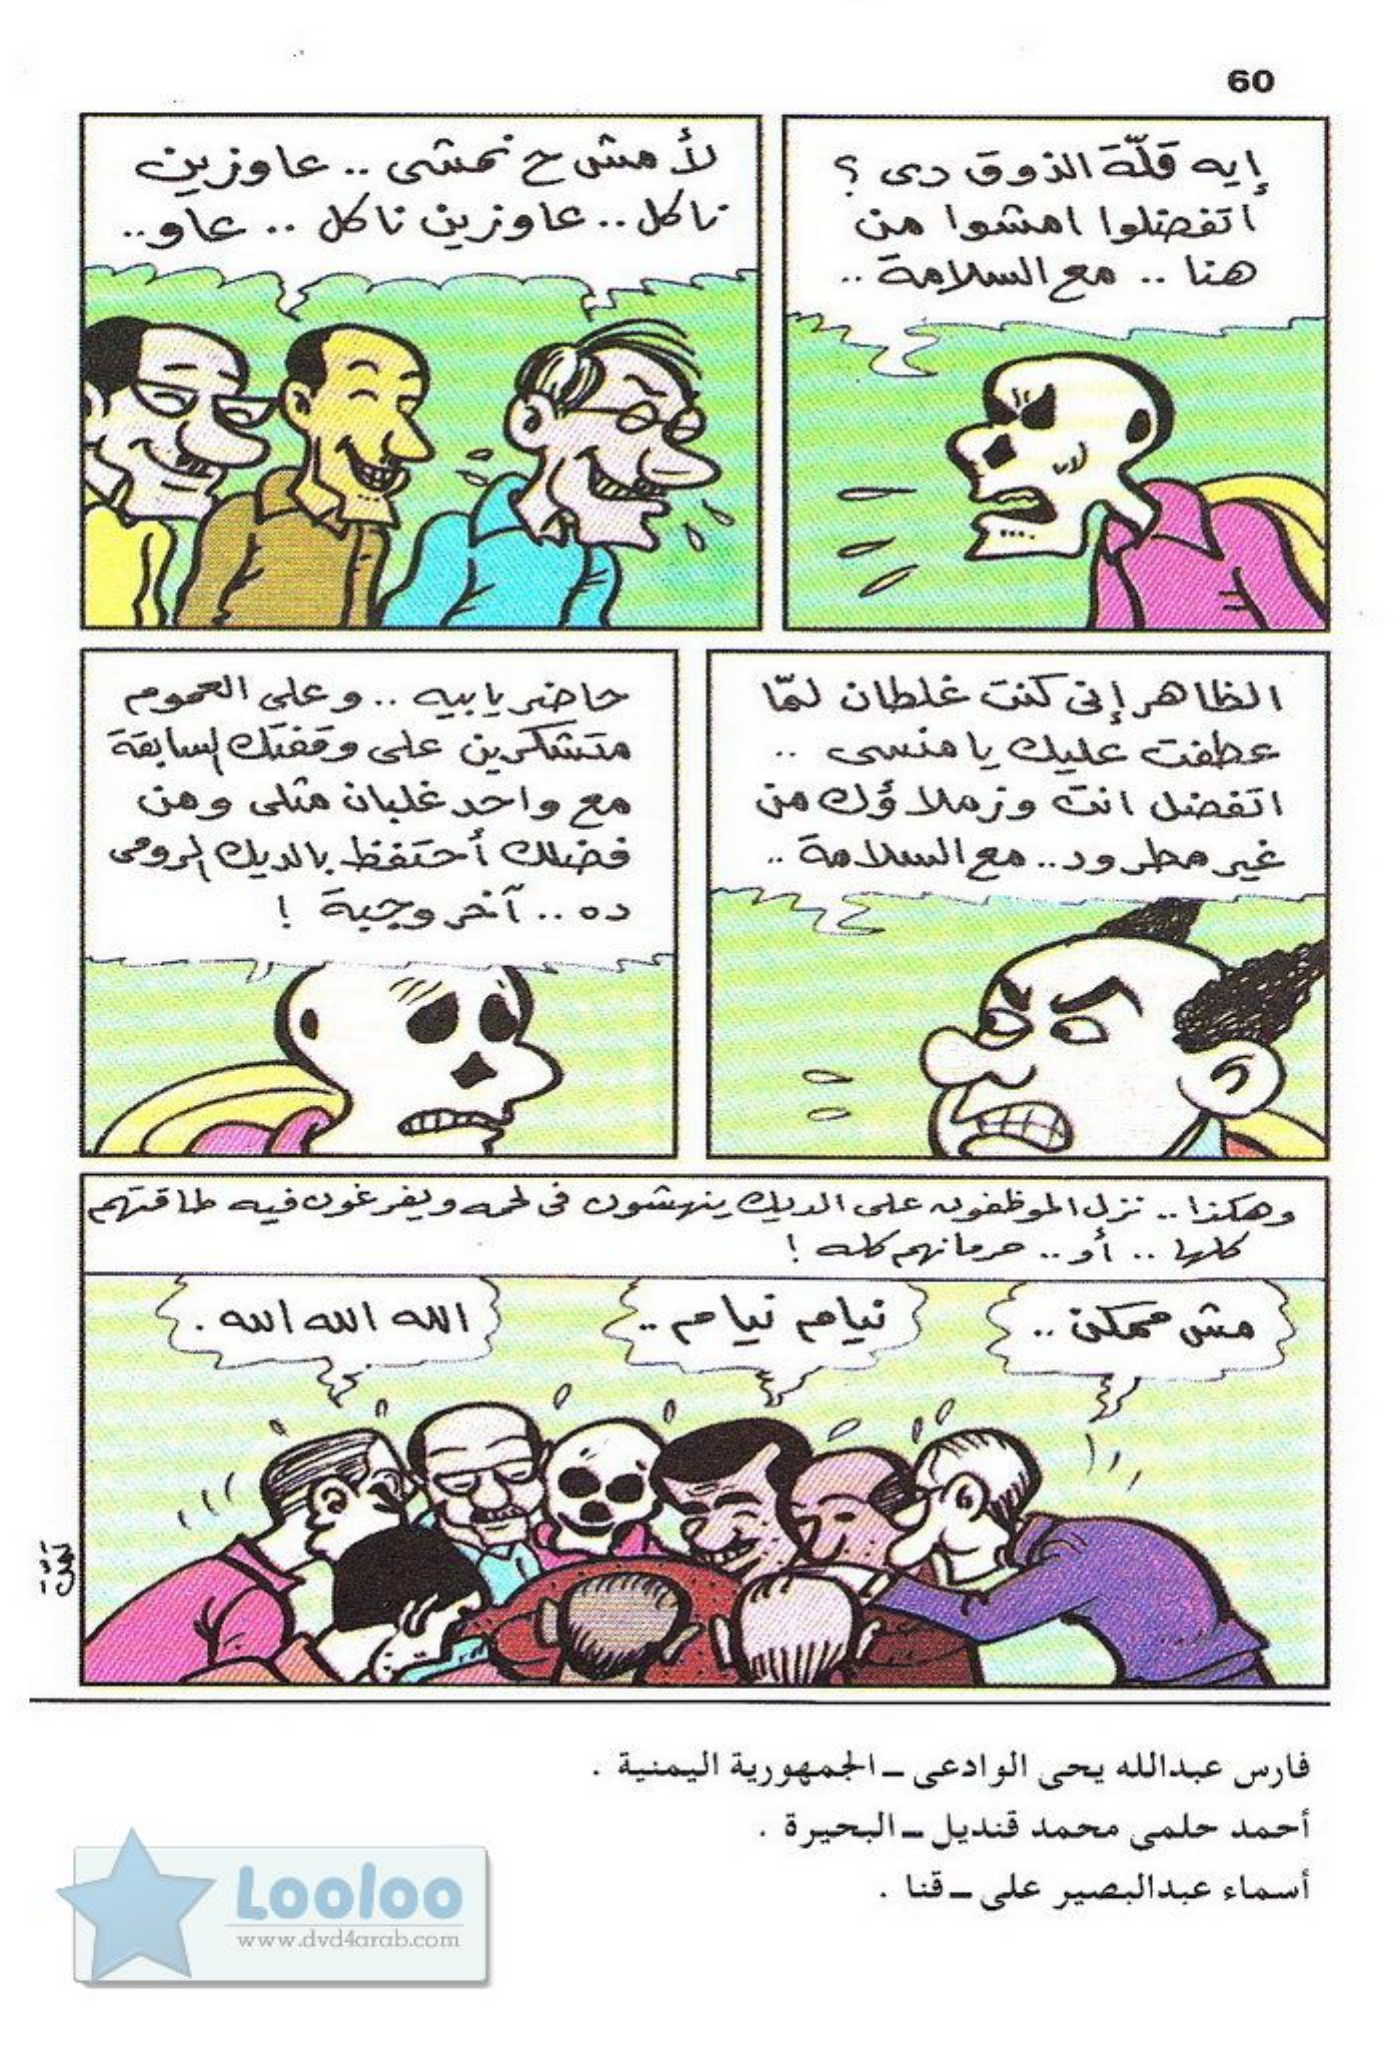 60
إيه قلّة الذوق دى ؟
اتفضلوا امشوا من
هنا .. مع السلامة ..
لأ مش ح نمشى .. عاوزين
ناكل .. عاوزين ناكل .. عاو..
الظاهر إنى كنت غلطان لمّا
عطفت عليك يا منسى ..
اتفضل انت وزملاؤك من
غير مطرود .. مع السلامة ..
حاضر يا بيه .. وعلى العموم
متشكرين على وقفتك السابقة
مع واحد غلبان مثلى ومن
فضلك أحتفظ بالديك الرومى
ده .. آخر وجبة !
وهكذا .. نزل الموظفون على الديك ينهشون فى لحمه ويفرغون فيه طاقتهم
كلها .. أو .. حرمانهم كله !
مش ممكن ..
نيام نيام ..
الله الله الله .
فارس عبدالله يحى الوادعى ــ الجمهورية اليمنية .
أحمد حلمى محمد قنديل ــ البحيرة .
أسماء عبدالبصير على ــ قنا .
Looloo
www.dvd4arab.com